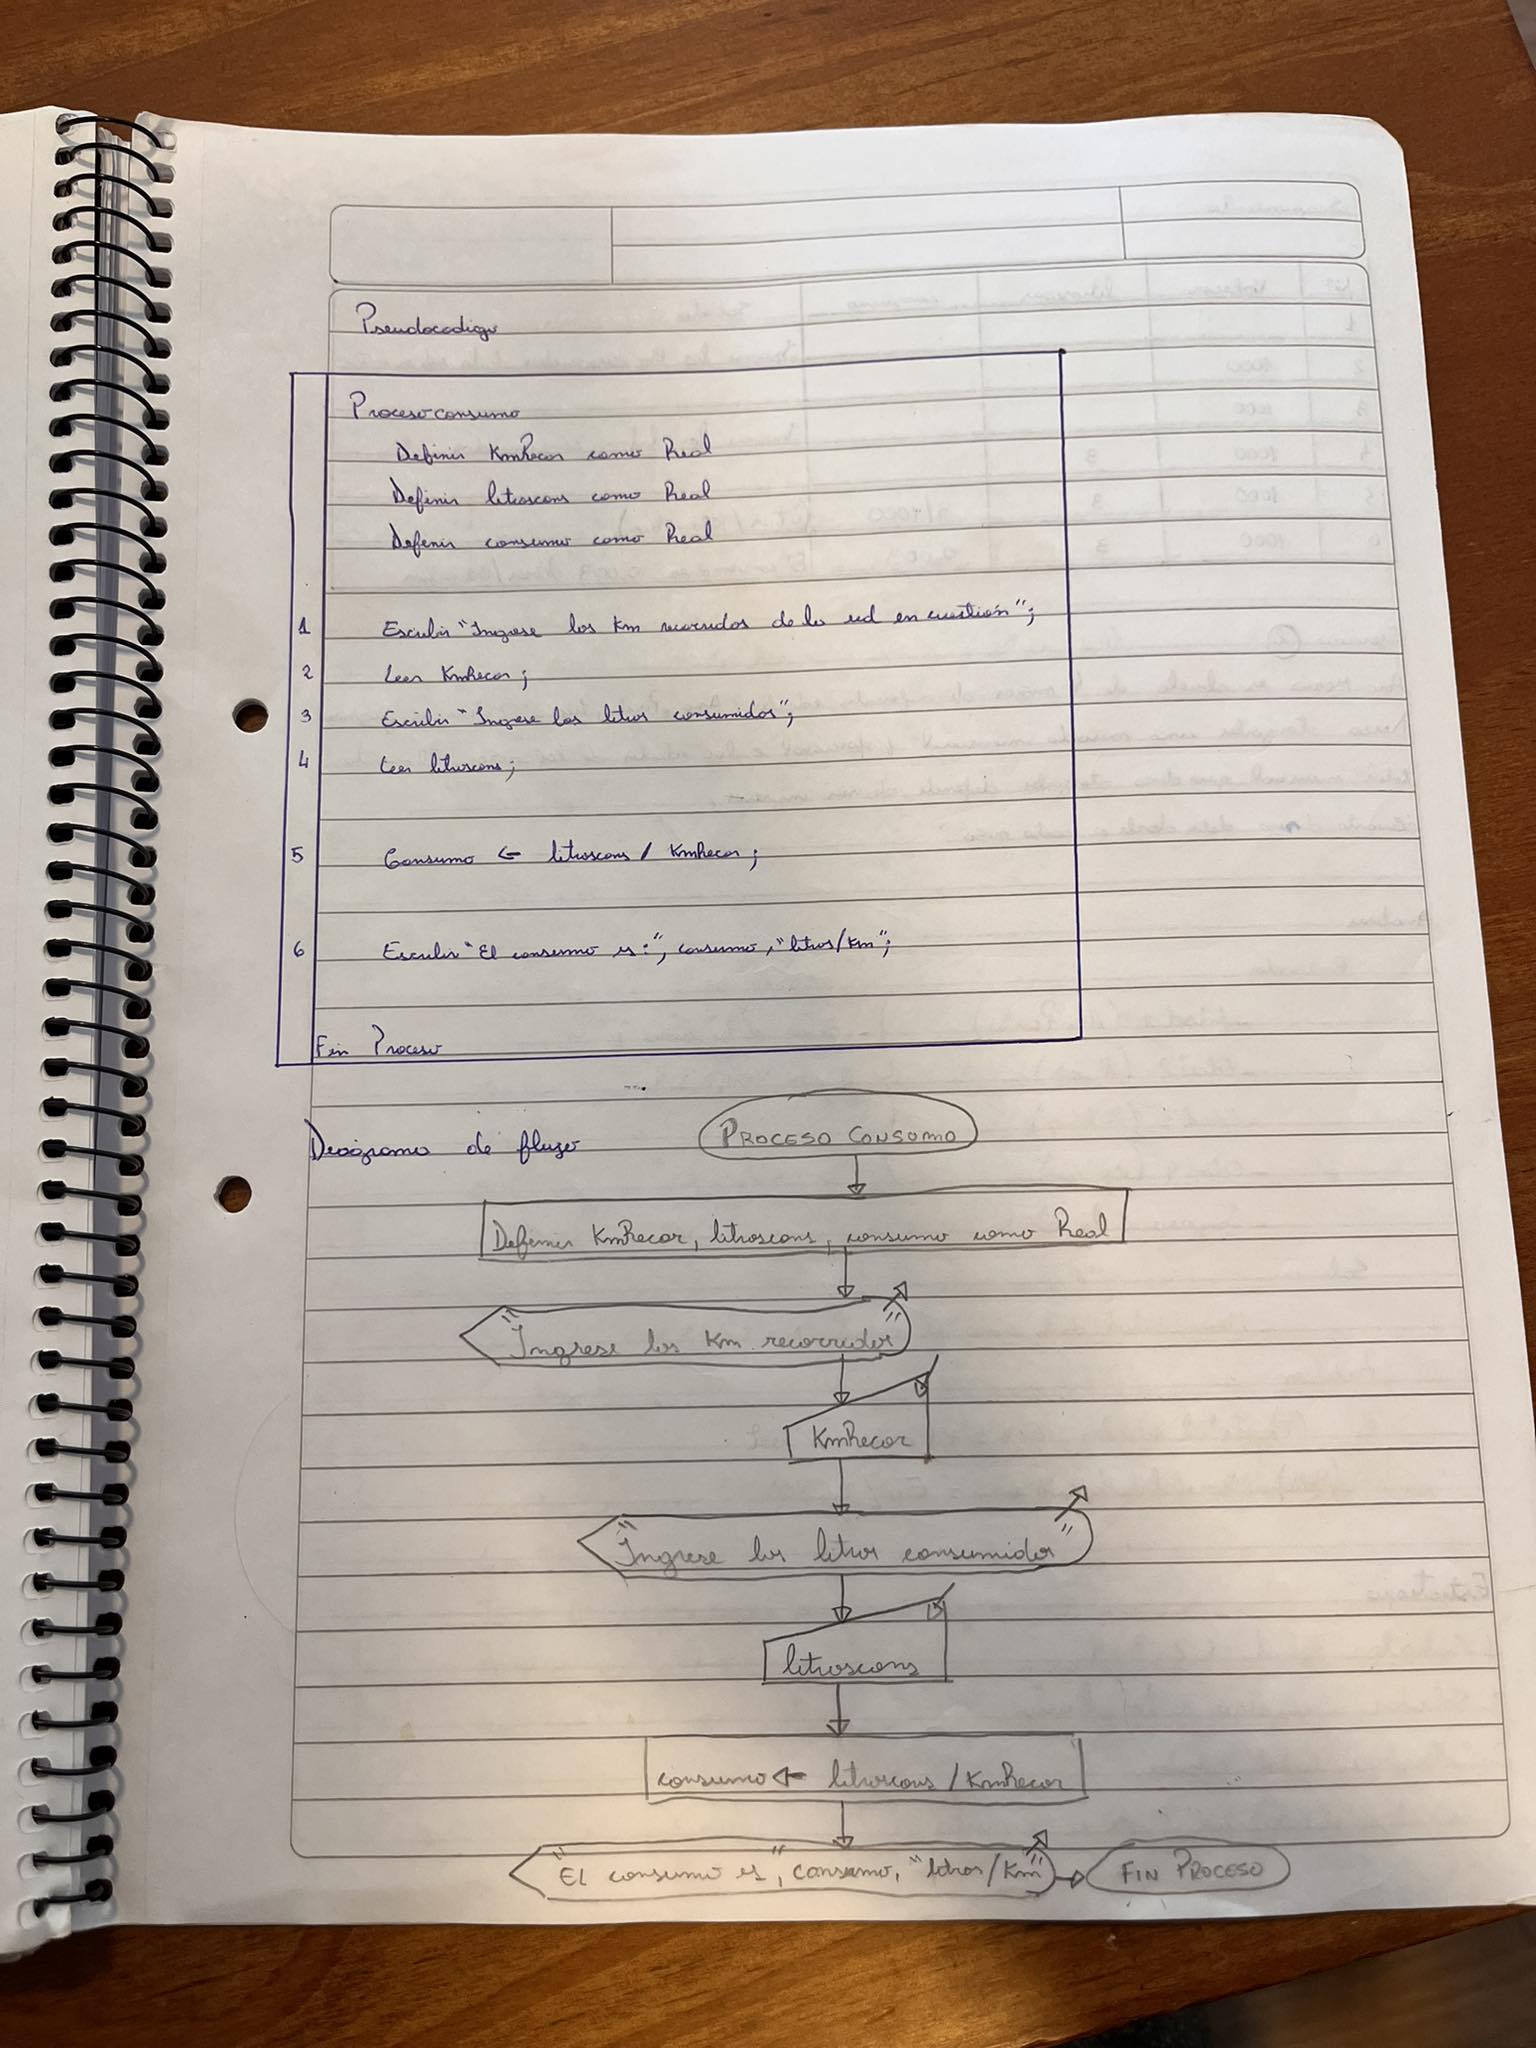 Pseudocodigo
Proceso consumo
Definir KmRecor como Real
Definir litroscons como Real
Definir consumo como Real
1 Escribir "Ingrese los Km recorridos de la red en cuestión";
2 Leer KmRecor;
3 Escribir "Ingrese los litros consumidos";
4 Leer litroscons;
5 Consumo ← litroscons / KmRecor;
6 Escribir "El consumo es:", consumo, "litros/Km";
Fin Proceso
Diagrama de flujo
PROCESO CONSUMO
Definir KmRecor, litroscons, consumo como Real
"Ingrese los Km recorridos"
KmRecor
"Ingrese los litros consumidos"
litroscons
consumo ← litroscons / KmRecor
"El consumo es", consumo, "litros/Km"
FIN PROCESO